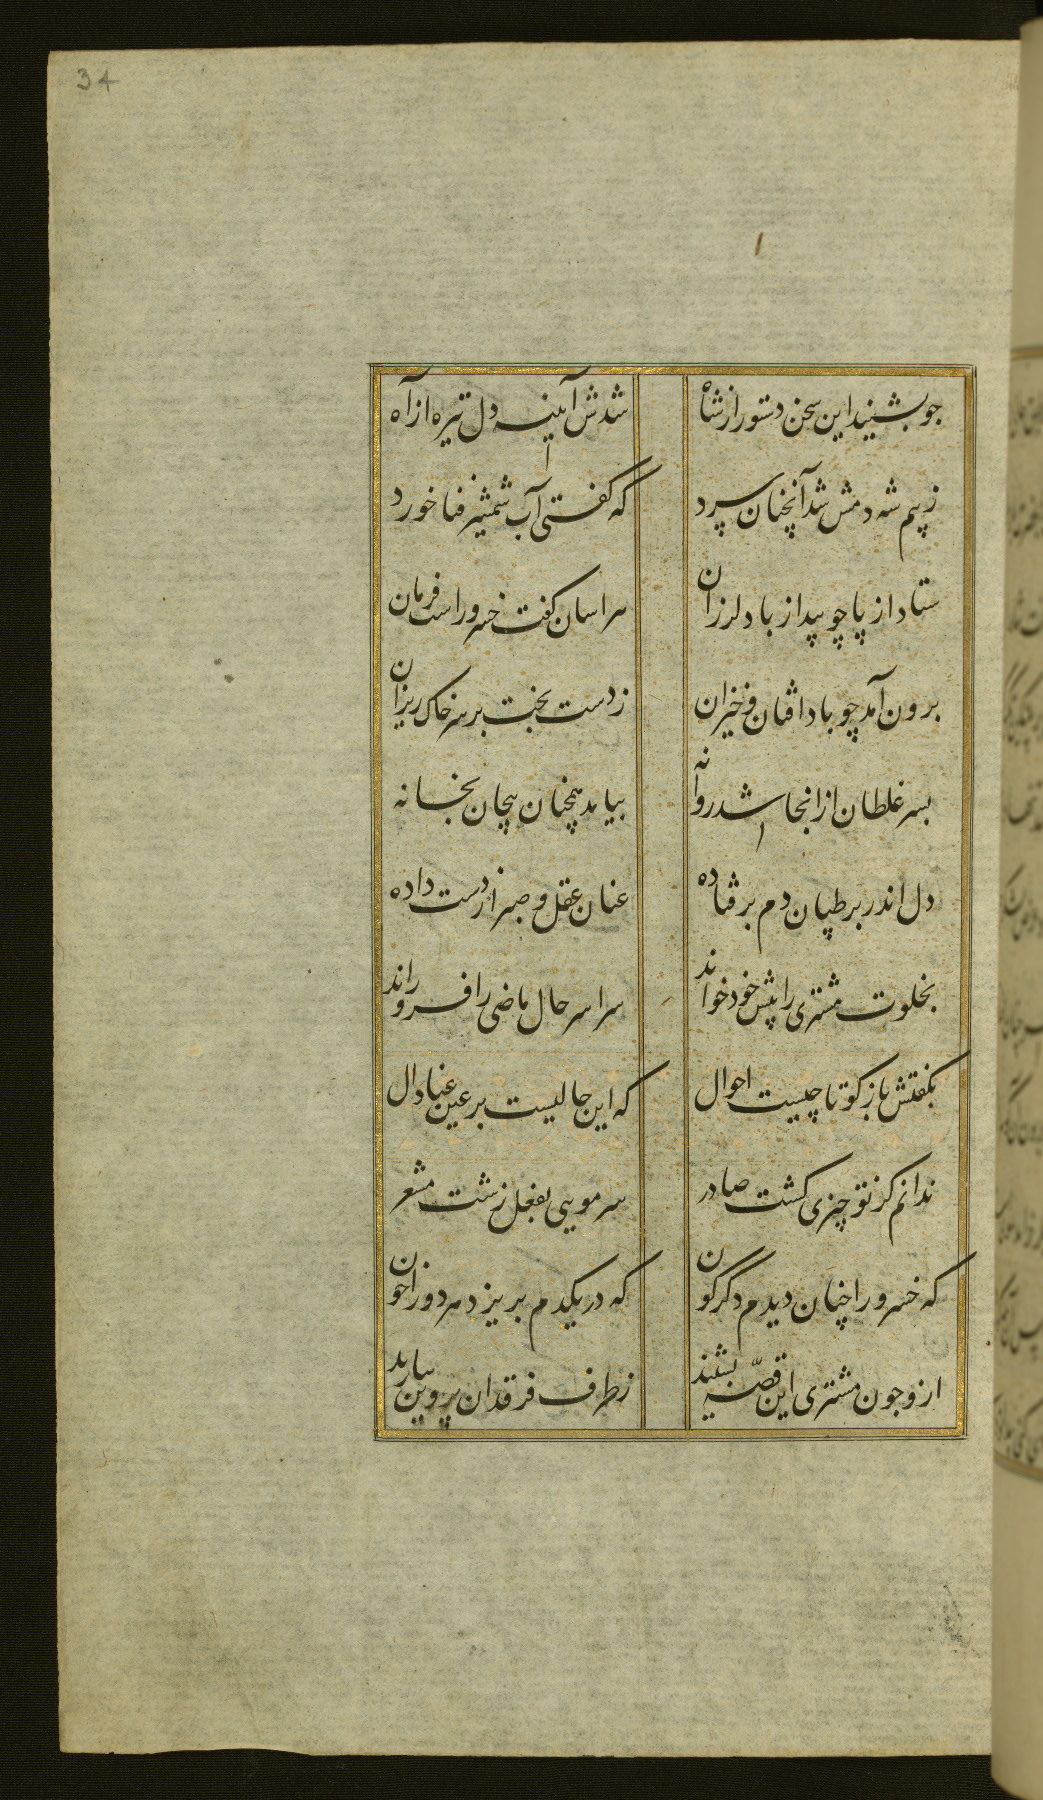 34
چو بشنید این سخن دستور از شاه شدش آیینه دل تیره از آه
ز بیم شه دمش شد آنچنان سرد که گفتی آب شمشیر فنا خورد
ستاد از پا چو بید از باد لرزان هراسان گفت خسرو راست فرمان
برون آمد چو باد افتان و خیزان ز دست بخت بر سر خاک ریزان
بسر غلطان از انجا شد روانه بیامد همچنان پیچان بخانه
دل اندر بر طپان دم بر فتاده عنان عقل و صبر از دست داده
بخلوت مشتری را پیش خود خواند سراسر حال ماضی را فرو راند
بگفتش باز گو تا چیست احوال که این حالیست بر عین عنا دال
ندانم کز تو چیزی گشت صادر سر مویی بفعل زشت مشعر
که خسرو را چنان دیدم دگرگون که در یکدم بریزد مر دو را خون
ازو چون مشتری این قصّه بشنید ز طرف فرقدان پروین ببارید